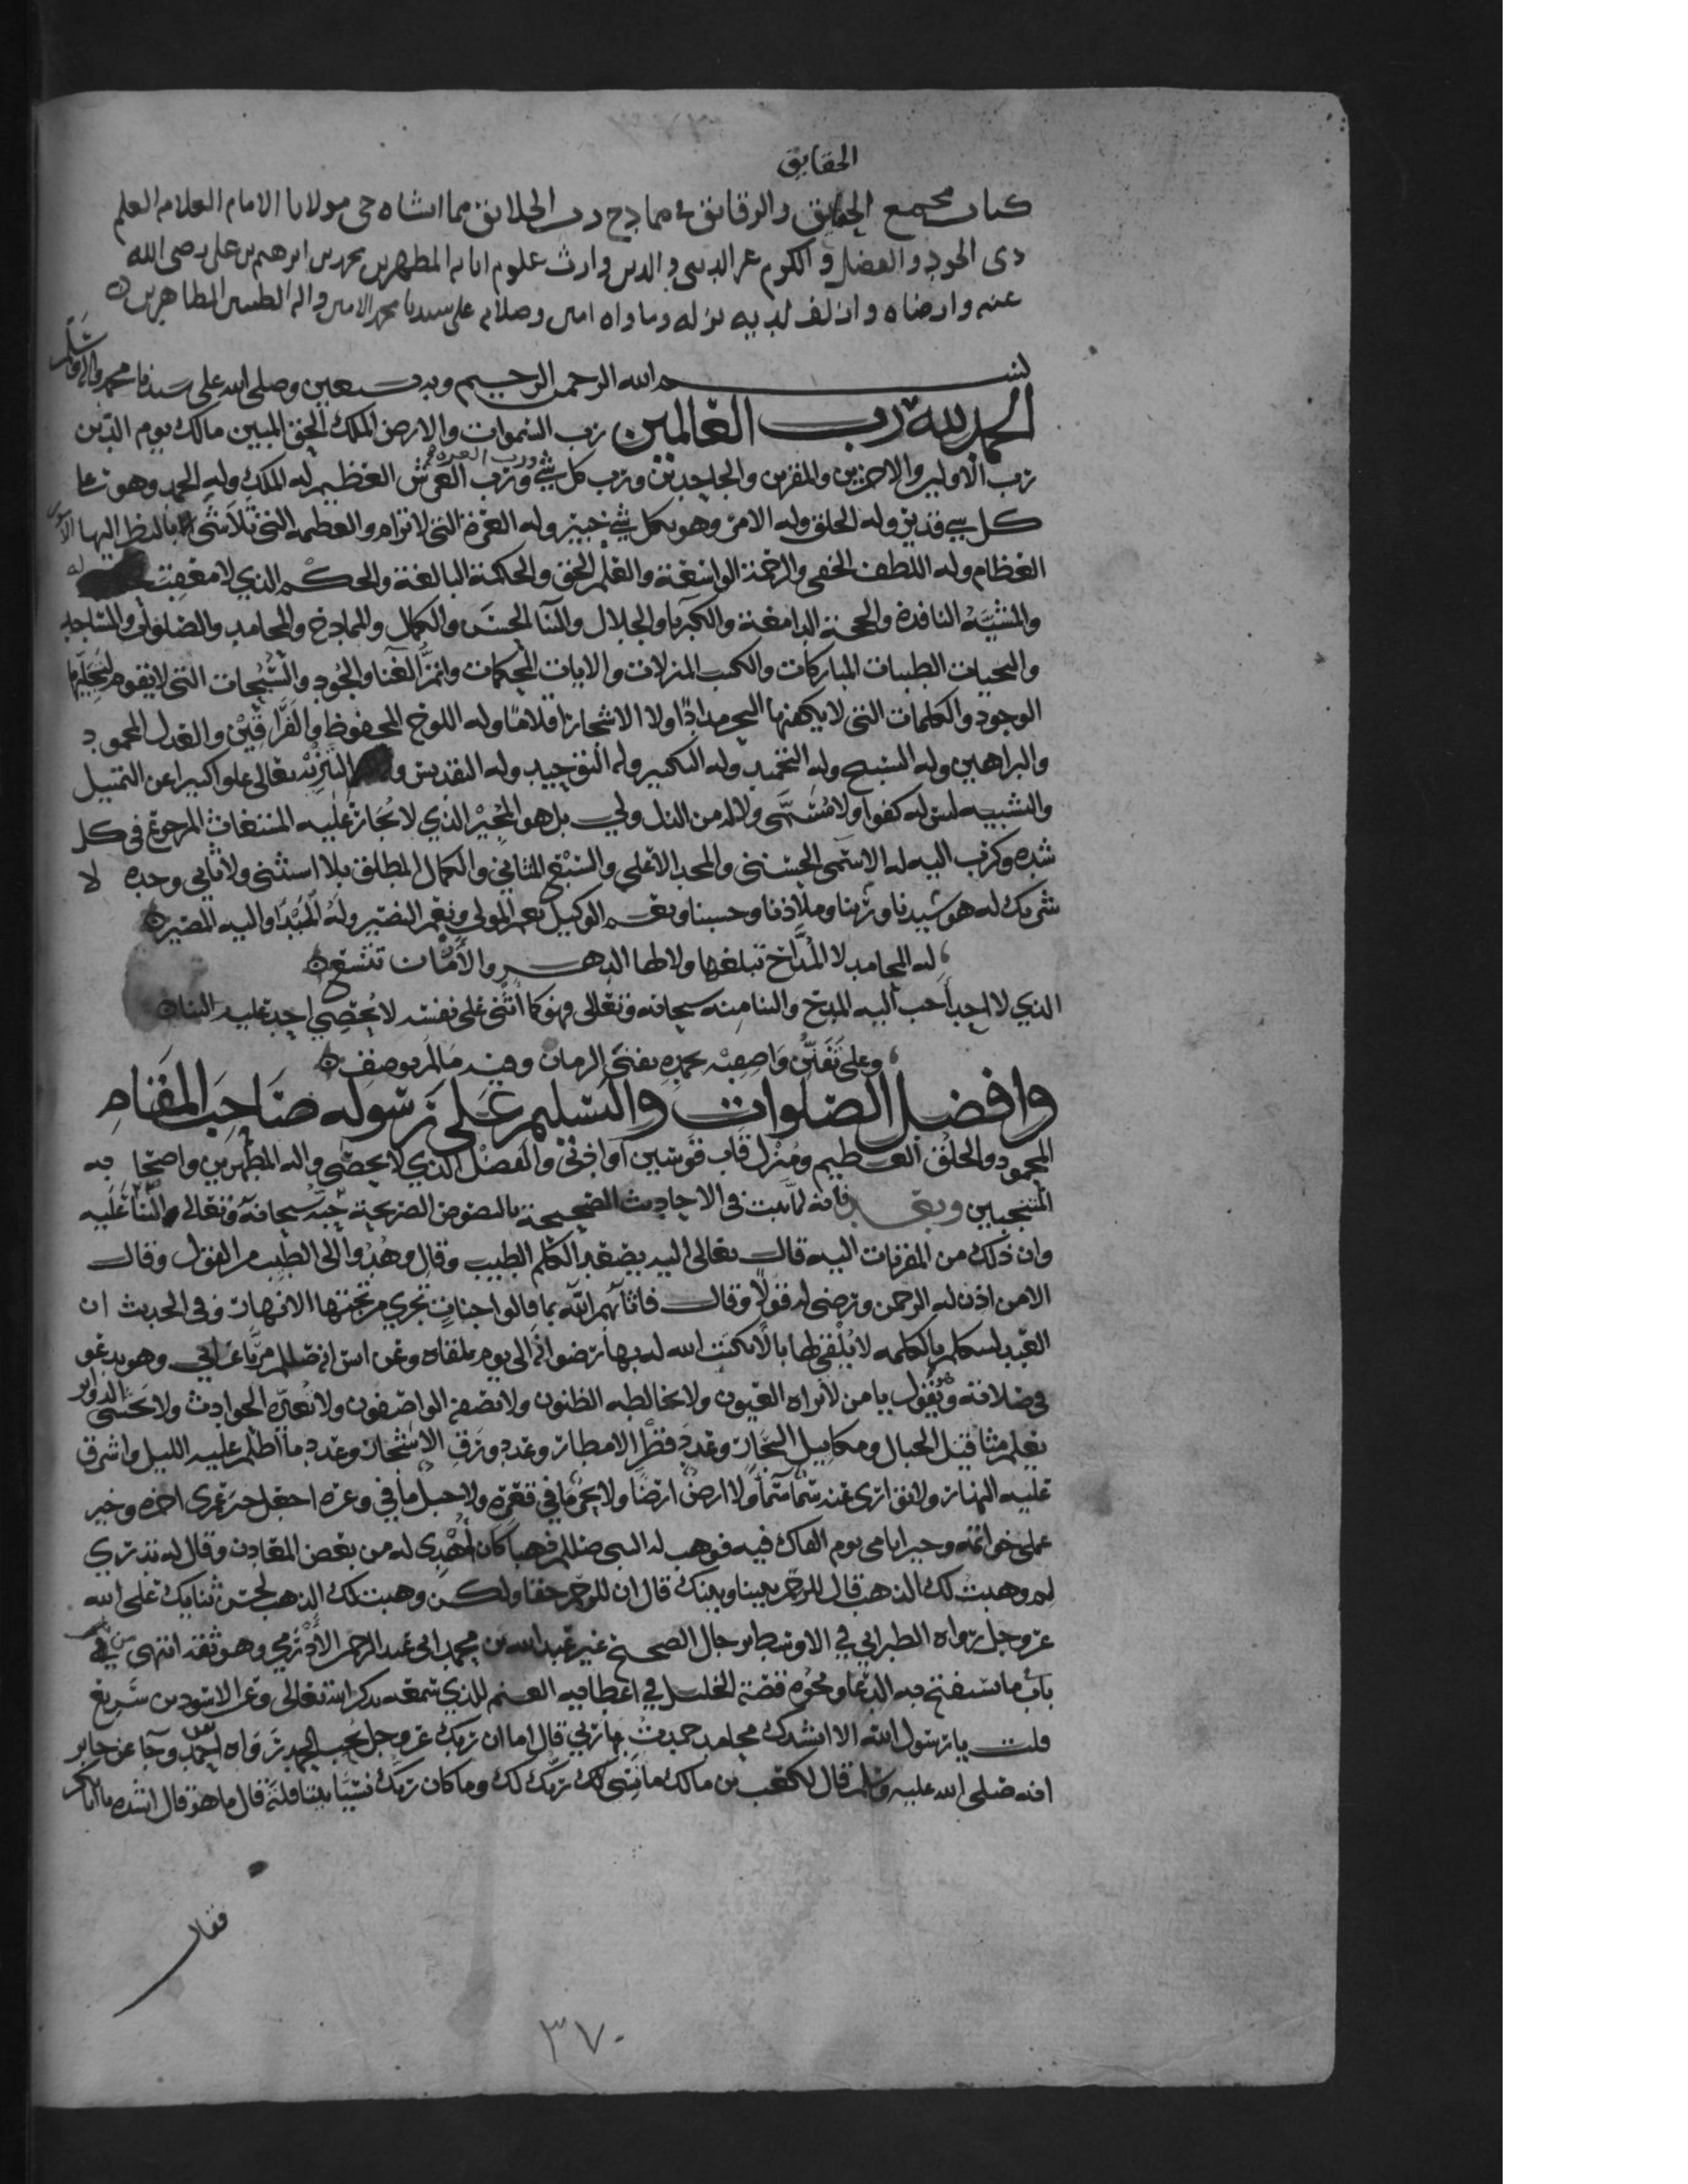 الحقايق
كتاب مجمع الحقايق والرقائق في ممادح رب الخلايق مما انشاه حي مولانا الامام العلامه العلم
ذي الجود والفضل والكرم عز الدنيا والدين وارث علوم ابايه المطهرين محمد بن ابرهيم بن علي رضي الله
عنه وارضاه وازلف لديه نزله وماواه امين وصلاته على سيدنا محمد الامين واله الطيبين الطاهرين
بسم الله الرحمن الرحيم وبه نستعين وصلى الله على سيدنا محمد واله وسلم
الحمد لله رب العالمين رب السموات والارض الملك الحق المبين مالك يوم الدين
رب الاولين والاخرين والمقرين والجاحدين ورب كل شي ورب العرش العظيم له الملك وله الحمد وهو على
كل شي قدير وله الخلق وله الامر وهو بكل شي خبير وله العزة التي لا ترام والعظمه التي تتلاشى بالنظر اليها الامور
العظام وله اللطف الخفي والرحمة الواسعة والعلم الحق والحكمة البالغة والحكم الذي لا معقب له
والمشيئة النافذة والحجة الدامغة والكبريا والجلال والثنا الحسن والكمال والممادح والمحامد والصلوات والمساجد
والتحيات الطيبات المباركات والكتب المنزلات والايات المحكمات والغنا والجود والسبحات التي لا يقوم لتجليها
الوجود والكلمات التي لا يكفيها البحر مدادا ولا الاشجار اقلاما وله اللوح المحفوظ والعدل المحمود
والبراهين وله التسبيح وله التحميد وله التكبير وله التوحيد وله التقديس و التنزيه تعالى علوا كبيرا عن التمثيل
والتشبيه ليس له كفوا ولا مسمى ولا له من الذل ولي بل هو المجير الذي لا يجار عليه المستغاث المرجوع في كل
شده وكرب اليه له الاسمى الحسنى والمجد الاعلى والسبع المثاني والكمال المطلق بلا استثنى ولا ثاني وحده لا
شريك له هو سيدنا وربنا وملاذنا وحسبنا ونعم الوكيل نعم المولى ونعم النصير وله المبدا واليه المصير
له المحامد لا المداح تبلغها ولا لها الدهر والازمان تتسع
الذي لا احد احب اليه المدح والثنا منه سبحانه وتعالى فهو كما اثنى على نفسه لا يحصي احد عليه الثنا
وعلى تفنن واصفيه بحمده يفنى الزمان وفيه ما لم يوصف
وافضل الصلوات والتسليم على رسوله صاحب المقام
المحمود والخلق العظيم ومنزل قاب قوسين او ادنى والفضل الذي لا يحصى واله المطهرين واصحابه
المنتجبين وبعد فانه لما ثبت في الاحاديث الصحيحة بالنصوص الصريحة حبه سبحانه وتعالى الثنا عليه
وان ذلك من المقربات اليه قال تعالى اليه يصعد الكلم الطيب وقال وهدوا الى الطيب من القول وقال
الا من اذن له الرحمن ورضي له قولا وقال فاثابهم الله بما قالوا جنات تجري من تحتها الانهار وفي الحديث ان
العبد ليتكلم بالكلمه لا يلقي لها بالا يكتب الله له بها رضوانه الى يوم يلقاه وعن انس انه صلى مر باعرابي وهو يدعو
في صلاته ويقول يا من لا تراه العيون ولا تخالطه الظنون ولا يصفه الواصفون ولا تغيره الحوادث ولا يخشى الدواير
يعلم مثاقيل الجبال ومكاييل البحار وعدد قطر الامطار وعدد ورق الاشجار وعدد ما اظلم عليه الليل واشرق
عليه النهار ولا توارى عنه سما سما ولا ارض ارضا ولا بحر ما في قعره ولا جبل ما في وعره اجعل خير عمري اخره وخير
عملي خواتمه وخير ايامي يوم القاك فيه فوهب له النبي صلم ذهبا كان اهدي له من بعض المعادن وقال له تدري
لم وهبت لك الذهب قال للرحم بيننا وبينك قال ان للرحم حقا ولكن وهبت لك الذهب لحسن ثنايك على الله
عز وجل رواه الطبراني في الاوسط ورجال الصحيح غير عبد الله بن محمد ابي عبد الرحمن الاذرمي وهو ثقه انتهى من في
باب ما يستفتح به الدعا ونحوه قصة الخليل في اعطايه الغنم للذي سمعه يذكر الله تعالى وعن الاسود بن سريع
قلت يا رسول الله الا انشدك محامد حمدت بها ربي قال اما ان ربك عز وجل يحب الحمد رواه احمد وجا عن جابر
انه صلى الله عليه وسلم قال لكعب بن مالك ما نسي ربك لك وما كان ربك نسيا بيتا قلته قال ما هو قال انشده يا ابا بكر
فقال
٣٧٠